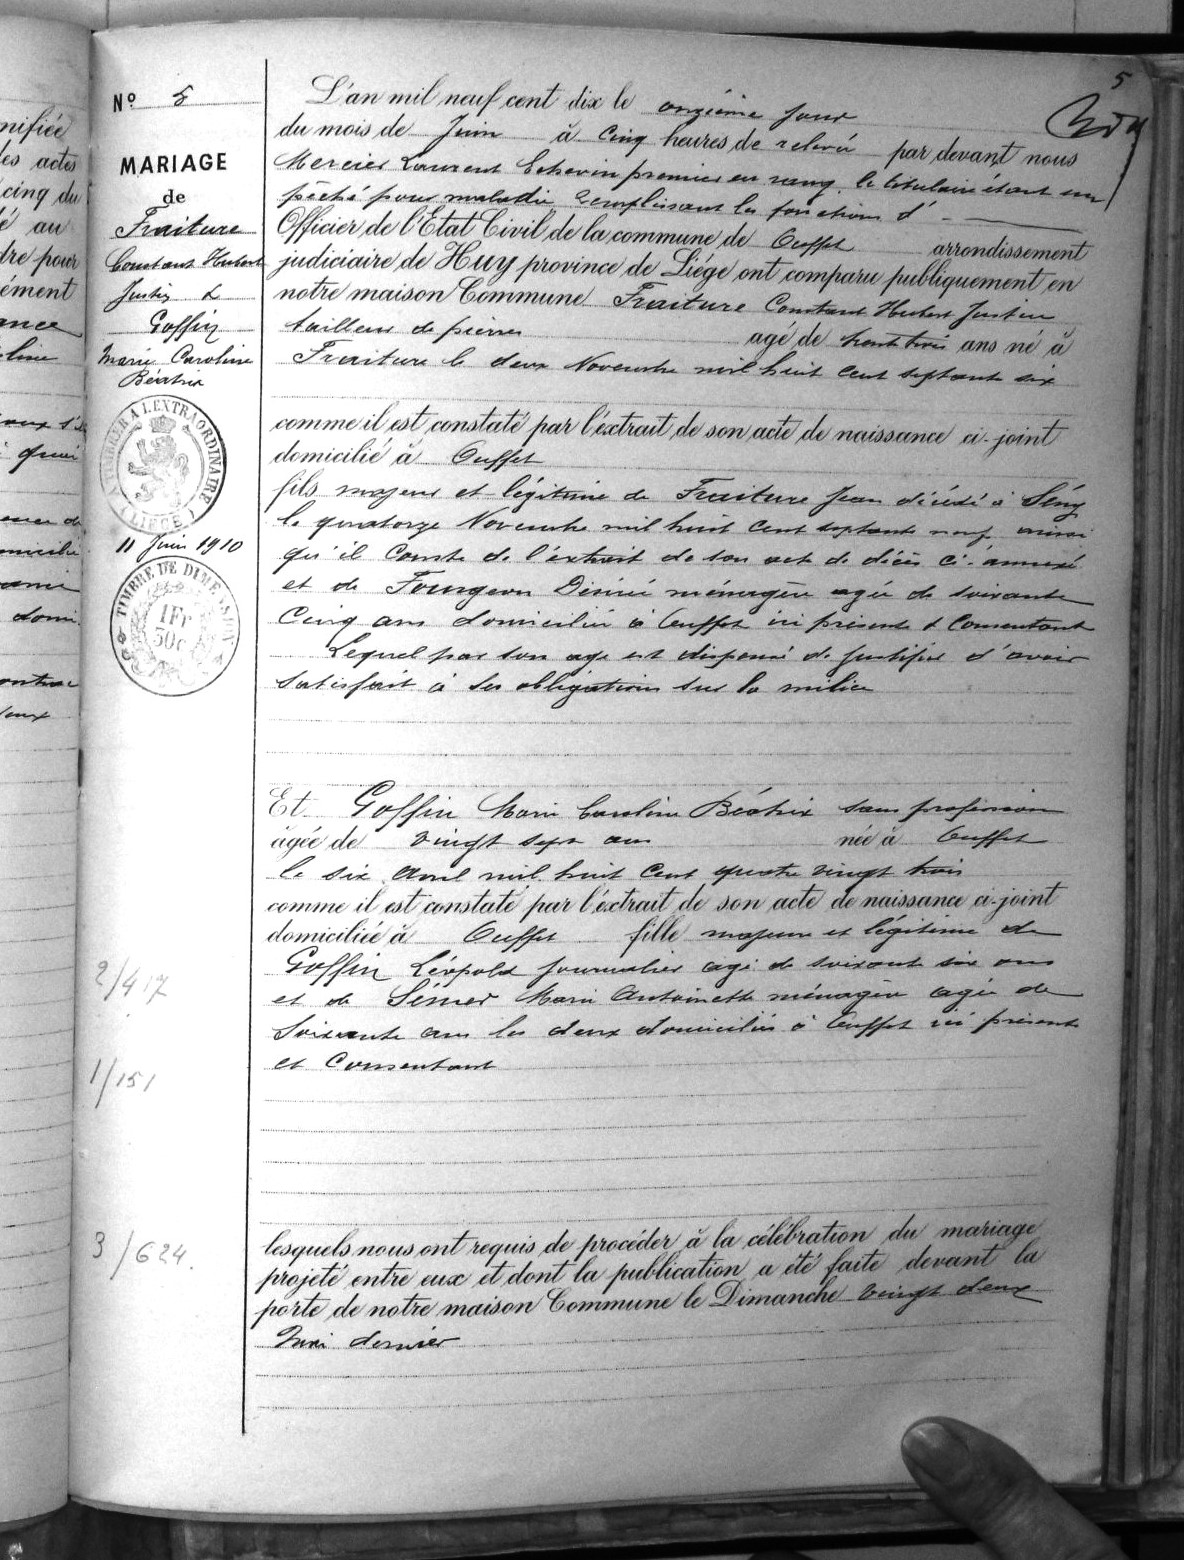 5
N° 5
MARIAGE
de
Fraiture
Constant Hubert
Justin &
Goffin
Marie Caroline
Béatrix
ATTIMBRER A L'EXTRAORDINAIRE
(LIÉGE)
11 Juin 1910
TIMBRE DE DIMENSION
1Fr
50c
2/417
1/151
3/624.
L'an mil neuf cent dix le onzième jour
du mois de Juin à cinq heures de relevée par devant nous
Mercier Laurent Echevin premier en rang, le titulaire étant em
pêché pour maladie remplissant les fonctions d'
Officier de l'Etat Civil de la commune de Ouffet arrondissement
judiciaire de Huy province de Liége ont comparu publiquement en
notre maison Commune Fraiture Constant Hubert Justin
tailleur de pierres agé de trente trois ans né à
Fraiture le deux Novembre mil huit cent septante six
comme il est constaté par l'extrait de son acte de naissance ci-joint
domicilié à Ouffet
fils majeur et légitime de Fraiture Jean décédé à
le quatorze Novembre mil huit cent septante neuf ainsi
qu'il conste de l'extrait de son acte de décès ci-annexé
et de Fourgeon Désirée ménagère agée de soixante
cinq ans domiciliée à Ouffet ici présente & consentant
Lequel par son age est dispensé de justifier d'avoir
satisfait à ses obligations sur la milice
Et Goffin Marie Caroline Béatrix sans profession
âgée de vingt sept ans née à Ouffet
le six Avril mil huit cent quatre vingt trois
comme il est constaté par l'extrait de son acte de naissance ci-joint
domiciliée à Ouffet fille majeure et légitime de
Goffin Léopold journalier agé de soixante six ans
et de Marie Antoinette ménagère agée de
soixante ans les deux domiciliés à Ouffet ici présent
et consentant
lesquels nous ont requis de procéder à la célébration du mariage
projeté entre eux et dont la publication a été faite devant la
porte de notre maison Commune le Dimanche vingt deux
Mai dernier